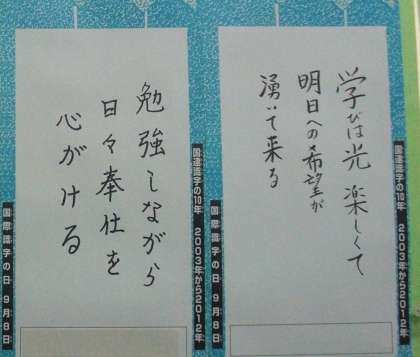 学びは光 楽しくて
明日への希望が
湧いて来る
国連識字の10年 2003年から2012年
国際識字の日 9月8日
勉強しながら
日々奉仕を
心がける
国連識字の10年 2003年から2012年
国際識字の日 9月8日